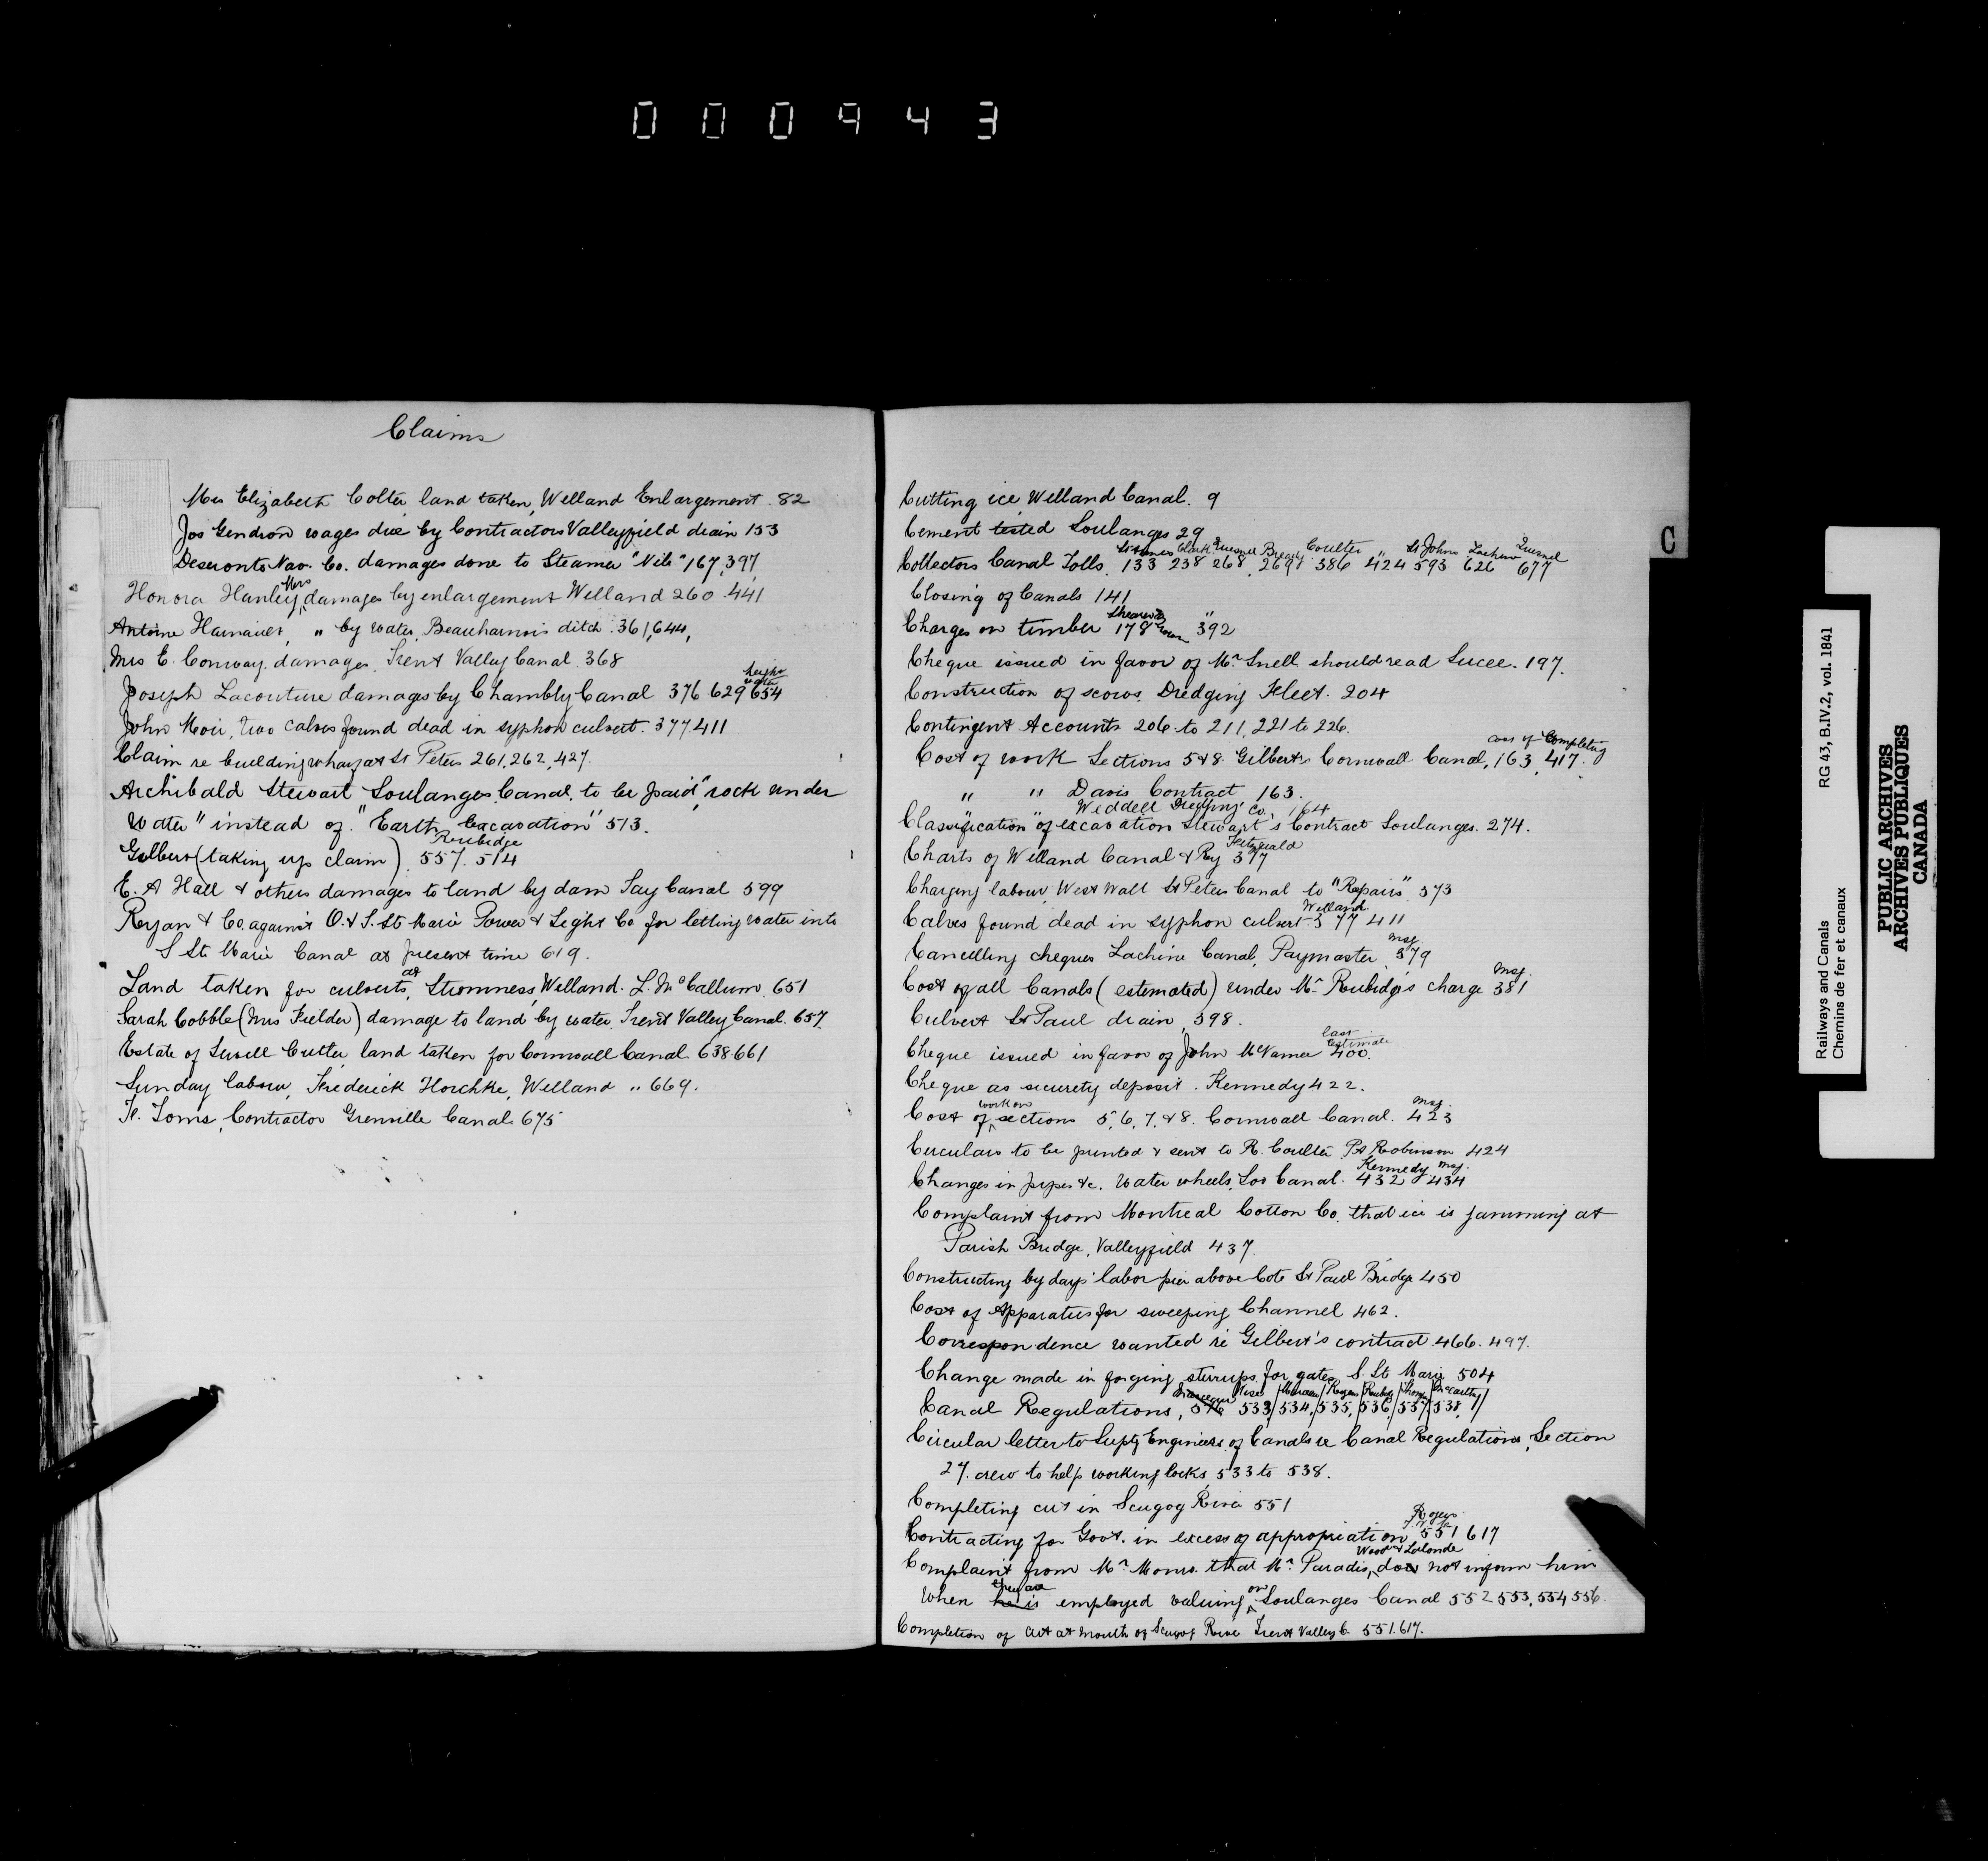 000943
Claims
Mrs Elizabeth Colter, land taken, Welland Enlargement. 82
Jos Gendron wages due by Contractors Valleyfield drain 153
Deseronto Nav. Co. damages done to Steamer "Nile" 167, 397,
Honora Hanley, Mrs damages by enlargement Welland 260. 441
Antoine Hainault, " by water, Beauharnois ditch. 361, 644,
Mrs E. Conway. damages. Trent Valley Canal 368
Joseph Lacouture damages by Chambly Canal 376. 629 654
John Moir, two calves found dead in syphon culvert. 377 411
Claim re building wharf at St Peters 261, 262, 427.
Archibald Stewart Soulanges Canal, to be paid "rock under
water" instead of "Earth Excavation" 513.
Rubidge
Gilbert (taking up claim). 557. 514
E. A Hall & others damages to land by dam Tay Canal 599
Ryan & Co. against O. & S. Ste Marie Power & Light Co for letting water into
S Ste Marie Canal at present time 619.
Land taken for culverts, at Stromness, Welland. L. McCallum. 651
Sarah Cobble (Mrs Fielder) damage to land by water, Trent Valley Canal. 657.
Estate of Cutler, land taken for Cornwall Canal. 638 661
Sunday labour, Frederick Horchke, Welland .. 669.
Toms, Contractor Grenville Canal. 675
C
Cutting ice, Welland Canal. 9
Cement tested Soulanges 29
Clark Quesnel Coulter " St Johns Lachine Quesnel
Collectors Canal Tolls. 133 238 268, 269 & 386 424 593 626 677
Closing of Canals 141
Charges on timber 178 392
Cheque issued in favor of Mr Snell should read Sucee. 197.
Construction of scows. Dredging Fleet. 204
Contingent Accounts 206 to 211, 221 to 226.
cost of Completing
Cost of work Sections 5 & 8. Gilbert's Cornwall Canal, 163, 417.
" " Davis Contract 163.
" " Weddell Dredging Co. 164
Classification of excavation Stewart's Contract Soulanges. 274.
Charts of Welland Canal & Ry 377
Charging labour, West Wall St Peters Canal to "Repairs" 373
Welland.
Calves found dead in syphon culvert. 377 411
msg.
Cancelling cheques Lachine Canal, Paymaster. 379
msg.
Cost of all Canals (estimated) under Mr Rubidge's charge 381
Culvert St Paul drain, 398.
last estimate
Cheque issued in favor of John McNamee 400.
Cheque as security deposit. Kennedy 422.
work on msg.
Cost of sections 5, 6, 7, & 8. Cornwall Canal. 423
Circulars to be printed & sent to R. Coulter Pt Robinson 424
Kennedy. msg.
Changes in pipes &c. Water wheels, Soo Canal. 432 434
Complaint from Montreal Cotton Co. that ice is jamming at
Parish Bridge, Valleyfield 437.
Constructing by days' labor pier above Cote St Paul Bridge 450
Cost of Apparatus for sweeping Channel 462.
Correspondence wanted re Gilbert's contract. 466. 497.
Change made in forging stirrups for gates, S. Ste Marie 504
Rogers McCarthy
Canal Regulations, 516 533/534,/535,/536,/537/538,
Circular letter to Supts Engineers of Canals re Canal Regulations, Section
27. crew to help working locks 533 to 538.
Completing cut in Scugog River 551
Rogers
Contracting for Govt. in excess of appropriation, 551 617
Wood & Lalonde
Complaint from Mr Monro that Mr Paradis, does not inform him
they are
When he is employed valuing on Soulanges Canal 552 553, 554 556.
Completion of cut at mouth of Scugog River Trent Valley C. 551. 617.
Railways and Canals RG 43, B.IV.2, vol. 1841
Chemins de fer et canaux
PUBLIC ARCHIVES
ARCHIVES PUBLIQUES
CANADA